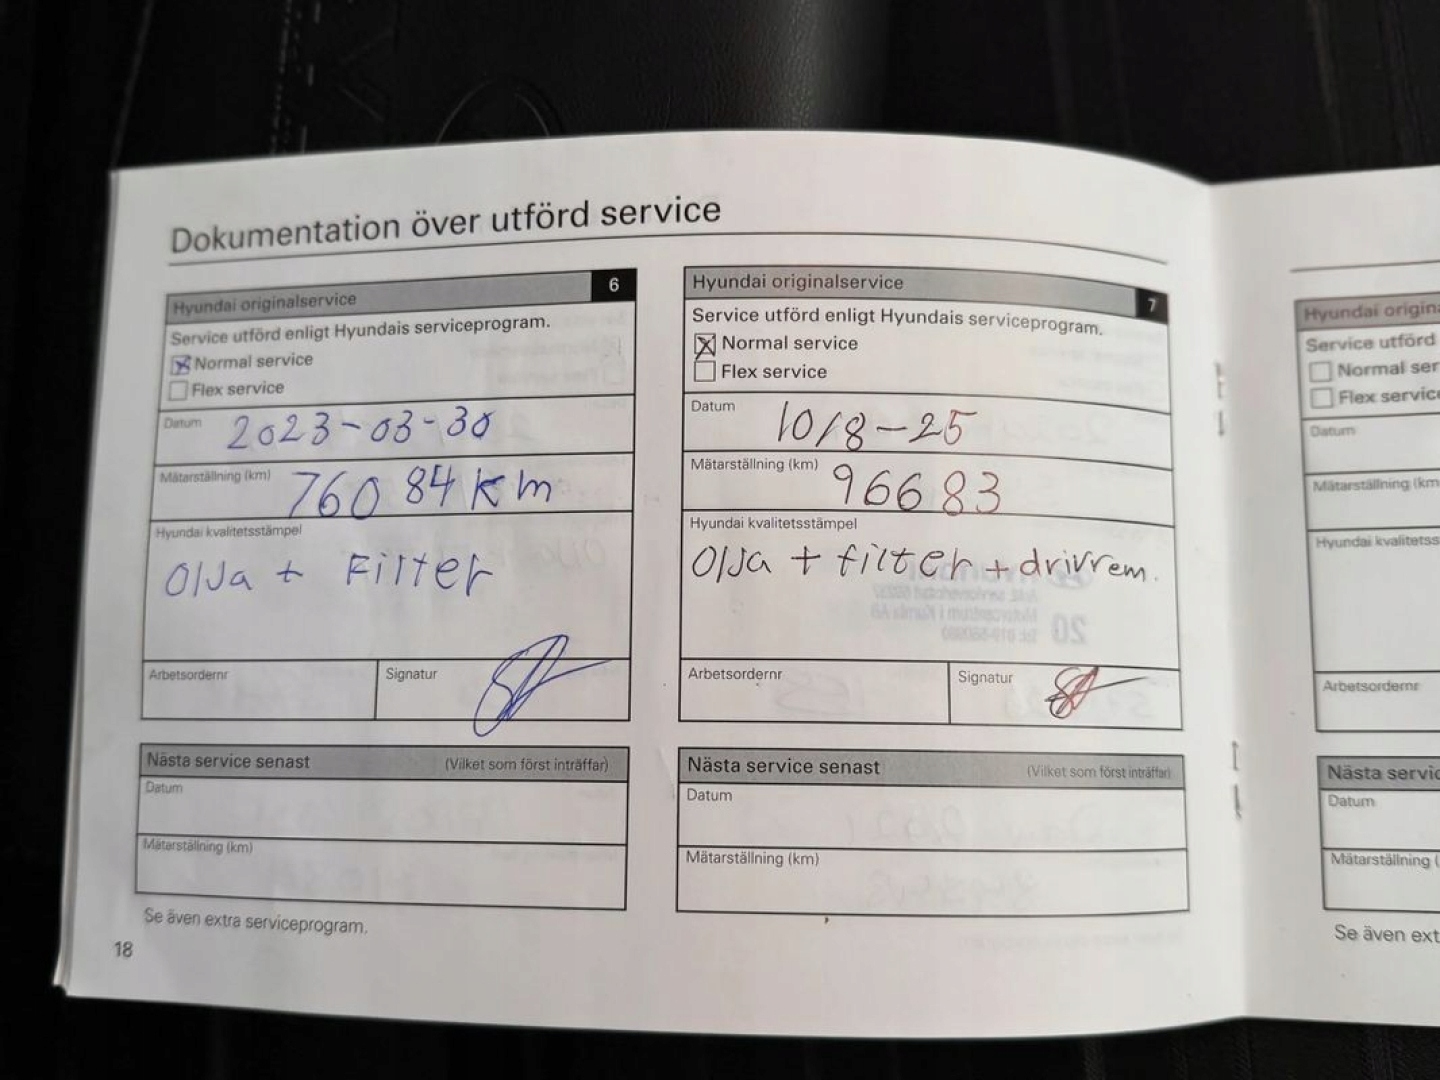 Dokumentation över utförd service
Hyundai originalservice 6
Service utförd enligt Hyundais serviceprogram.
Normal service
Flex service
Datum 2023-03-30
Mätarställning (km) 76084 km
Hyundai kvalitetsstämpel
Olja + Filter
Arbetsordernr Signatur
Nästa service senast (Vilket som först inträffar)
Datum
Mätarställning (km)
Se även extra serviceprogram.
18
Hyundai originalservice 7
Service utförd enligt Hyundais serviceprogram.
Normal service
Flex service
Datum 10/8-25
Mätarställning (km) 96683
Hyundai kvalitetsstämpel
Olja + filter + drivrem.
Arbetsordernr Signatur
Nästa service senast (Vilket som först inträffar)
Datum
Mätarställning (km)
Hyundai origin
Service utförd
Normal ser
Flex servic
Datum
Mätarställning (km
Hyundai kvalitetss
Arbetsordernr
Nästa servic
Datum
Mätarställning (
Se även ext